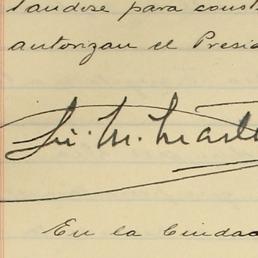 tandose para const
autorizan el Presid
En la Ciudad